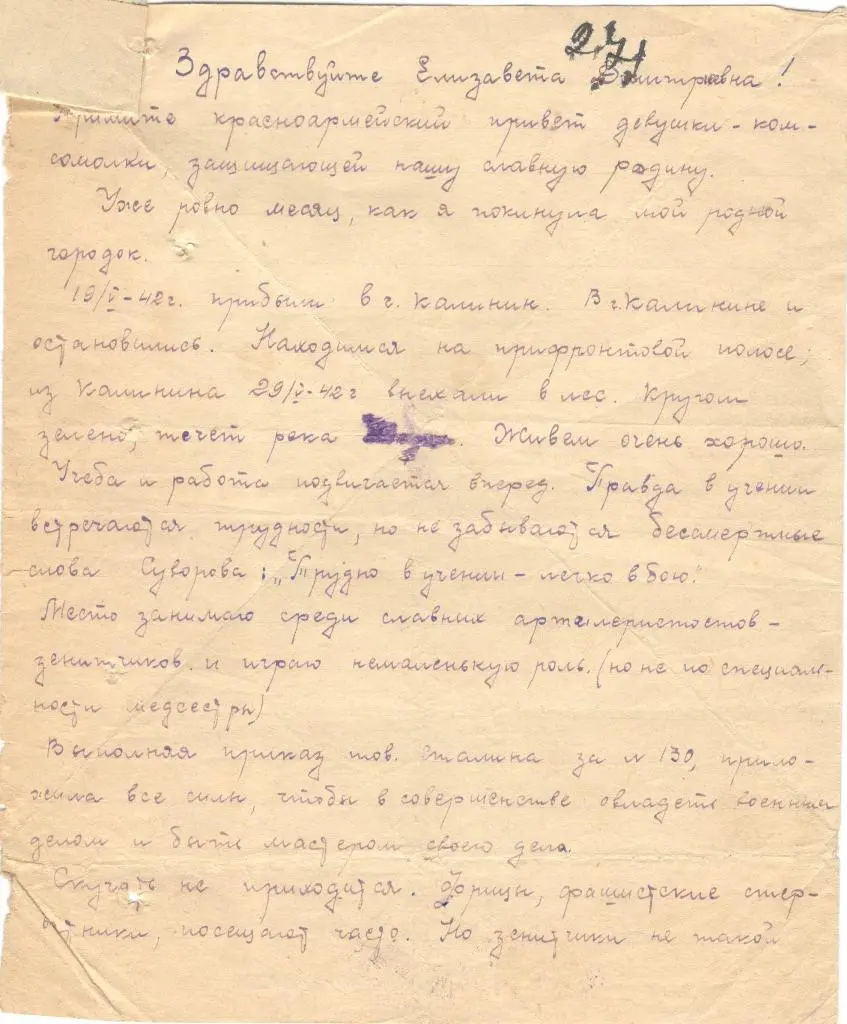 271
Здравствуйте Елизавета Дмитриевна!
Примите красноармейский привет девушки-ком-
сомолки, защищающей нашу славную родину.
Уже ровно месяц, как я покинула мой родной
городок.
19/V-42г. прибыли в г. Калинин. В г. Калинине и
остановились. Находимся на прифронтовой полосе;
из Калинина 29/V-42г выехали в лес. Кругом
зелено, течет река . Живем очень хорошо.
Учеба и работа подвигается вперед. Правда в учении
встречаются трудности, но не забываются бессмертные
слова Суворова: „Трудно в учении - легко в бою."
Место занимаю среди славних артилеристов-
зенитчиков. и играю немаленькую роль. (но не по специаль-
ности медсестры)
Выполняя приказ тов. Сталина за N 130, прило-
жила все силы, чтобы в совершенстве овладеть военным
делом и быть мастером своего дела.
Скучать не приходится. Фрицы, фашистские стер-
вятники, посещают часто. Но зенитчики не такой